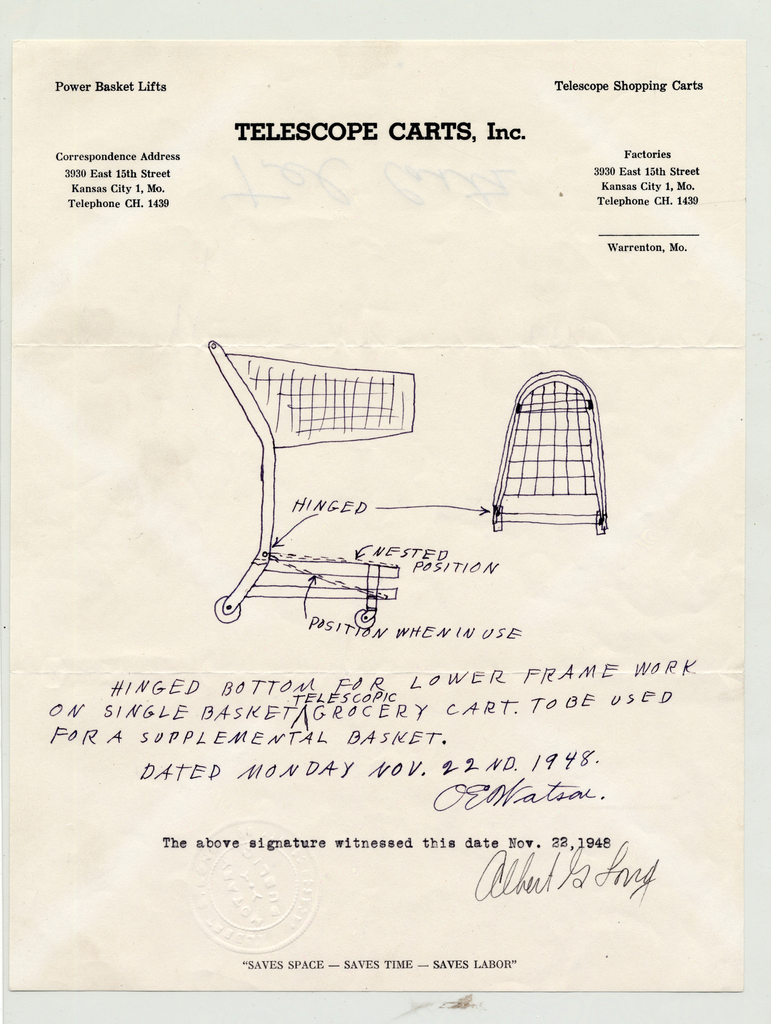 Power Basket Lifts
Telescope Shopping Carts
TELESCOPE CARTS, Inc.
Correspondence Address
3930 East 15th Street
Kansas City 1, Mo.
Telephone CH. 1439
Factories
3930 East 15th Street
Kansas City 1, Mo.
Telephone CH. 1439
Warrenton, Mo.
HINGED
NESTED
POSITION
POSITION WHEN IN USE
HINGED BOTTOM FOR LOWER FRAME WORK
ON SINGLE BASKET TELESCOPIC GROCERY CART. TO BE USED
FOR A SUPPLEMENTAL BASKET.
DATED MONDAY NOV. 22ND. 1948.
OEWatson.
The above signature witnessed this date Nov. 22,1948
Albert G Long
"SAVES SPACE — SAVES TIME — SAVES LABOR"